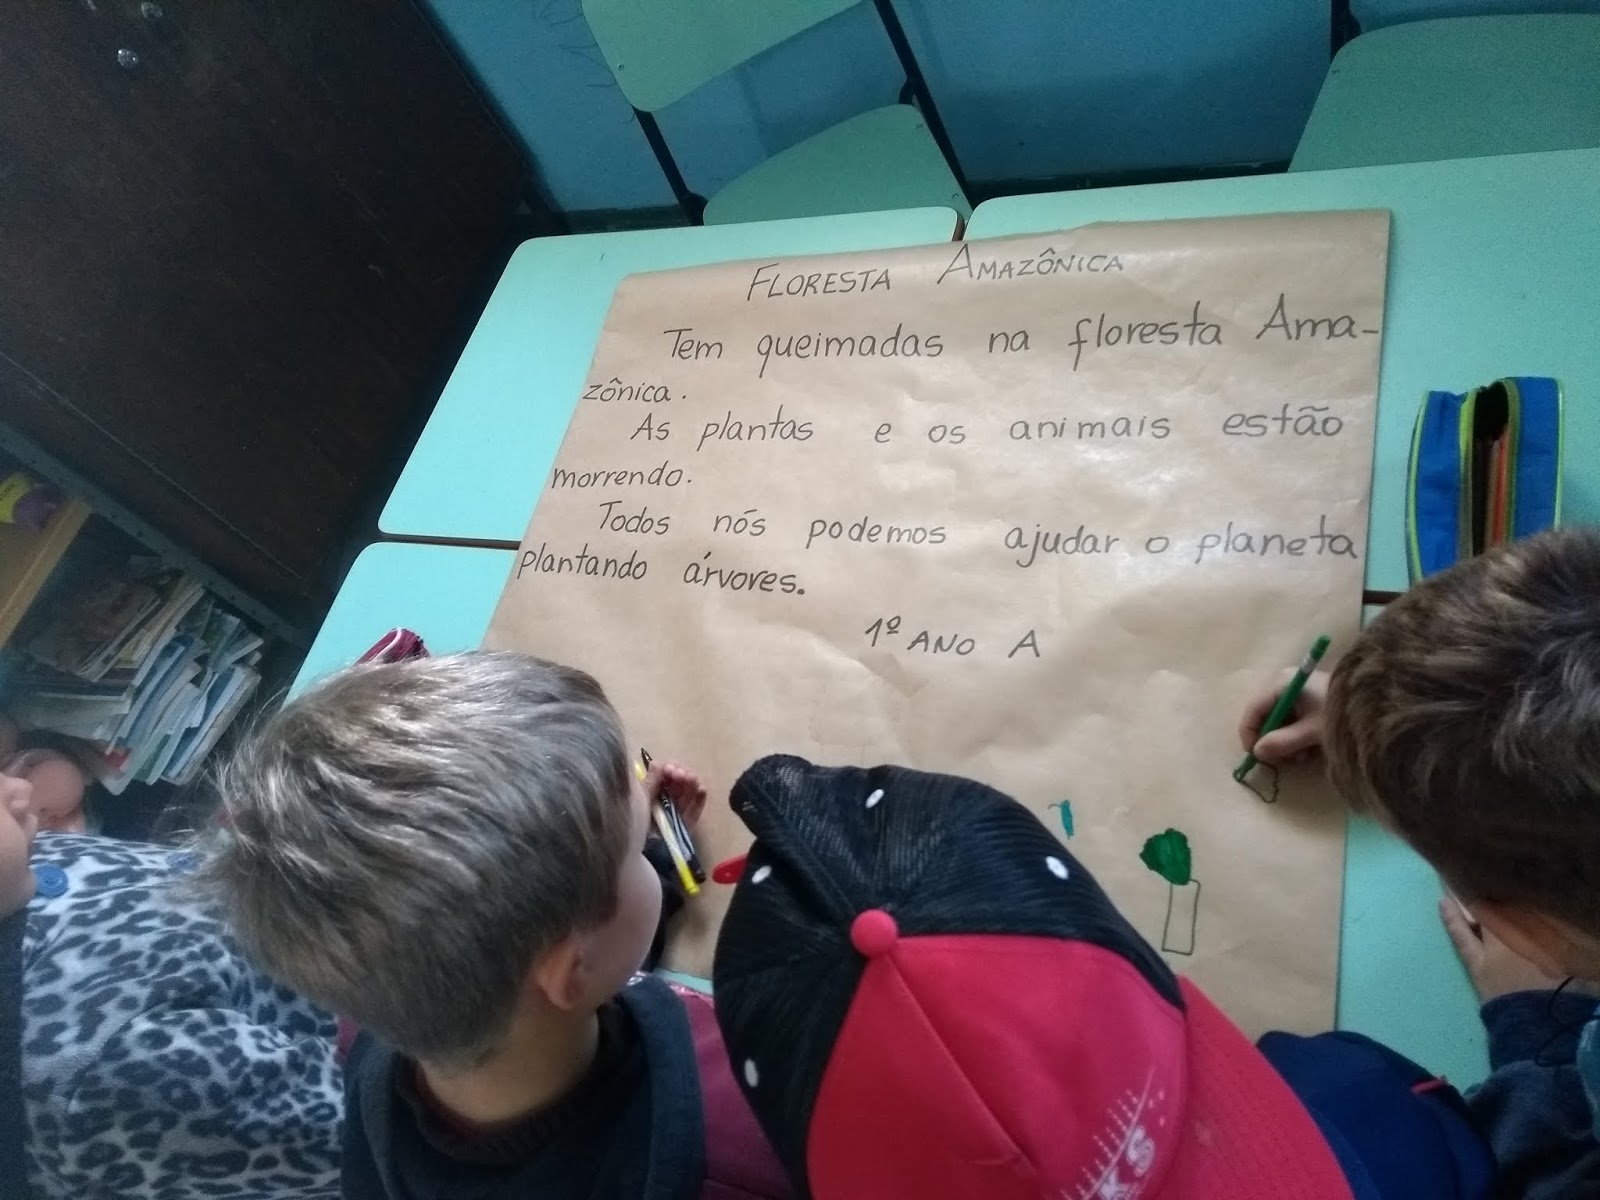 FLORESTA AMAZÔNICA
Tem queimadas na floresta Ama-
zônica.
As plantas e os animais estão
morrendo.
Todos nós podemos ajudar o planeta
plantando árvores.
1º ANO A
KS